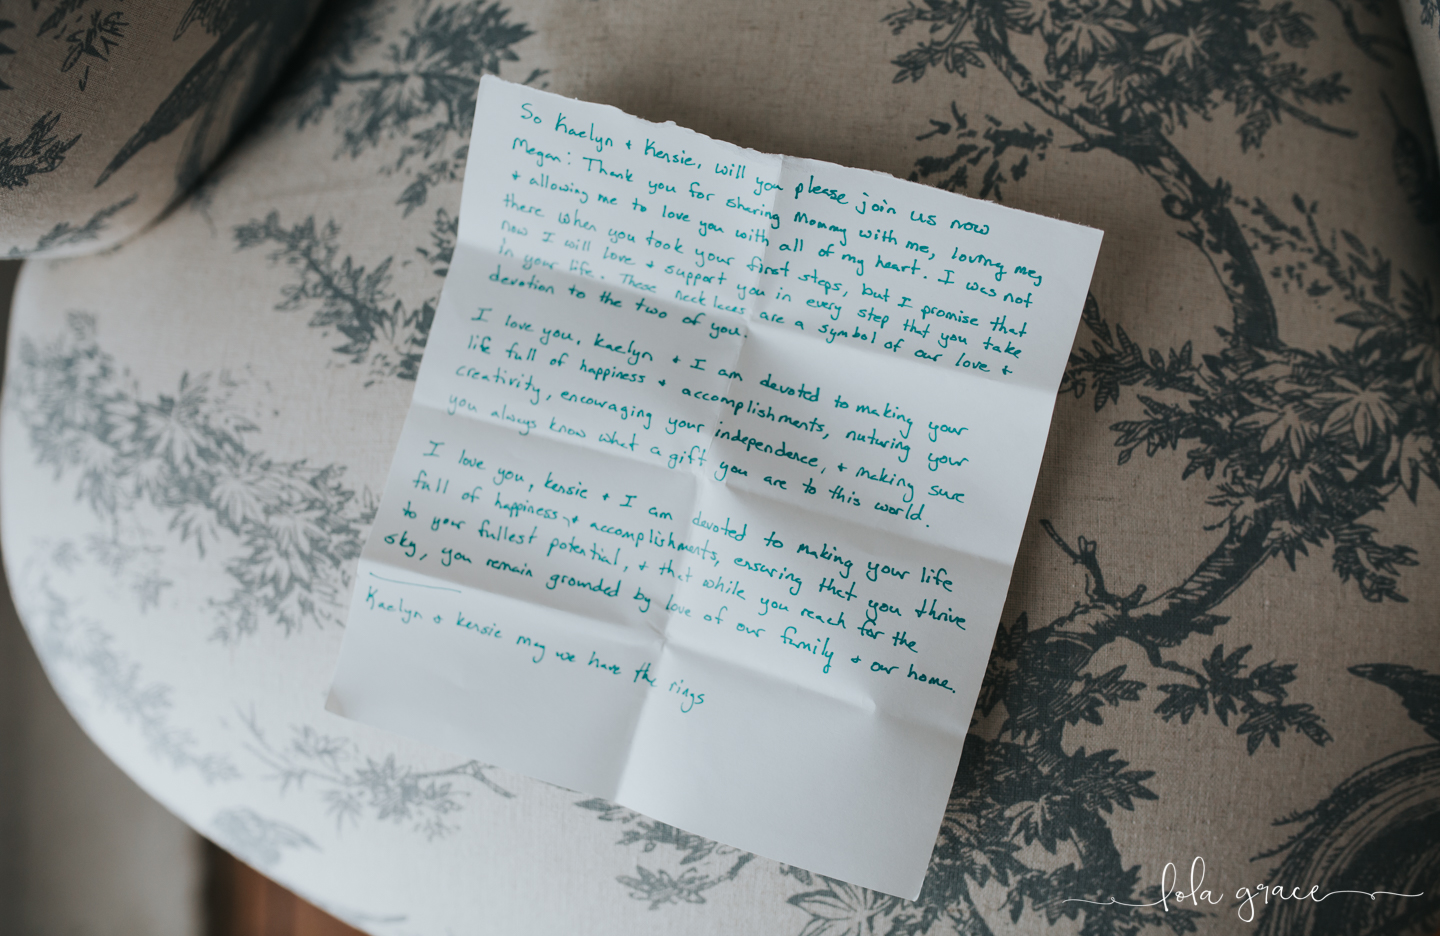 So Kaelyn + Kensie, will you please join us now
Megan: Thank you for sharing Mommy with me, loving me,
+ allowing me to love you with all of my heart. I was not
there when you took your first steps, but I promise that
now I will love + support you in every step that you take
in your life. These necklaces are a symbol of our love +
devotion to the two of you.
I love you, Kaelyn + I am devoted to making your
life full of happiness + accomplishments, nuturing your
creativity, encouraging your independence, + making sure
you always know what a gift you are to this world.
I love you, Kensie + I am devoted to making your life
full of happiness + accomplishments, ensuring that you thrive
to your fullest potential, + that while you reach for the
sky, you remain grounded by love of our family + our home.
Kaelyn + Kensie may we have the rings
lola grace